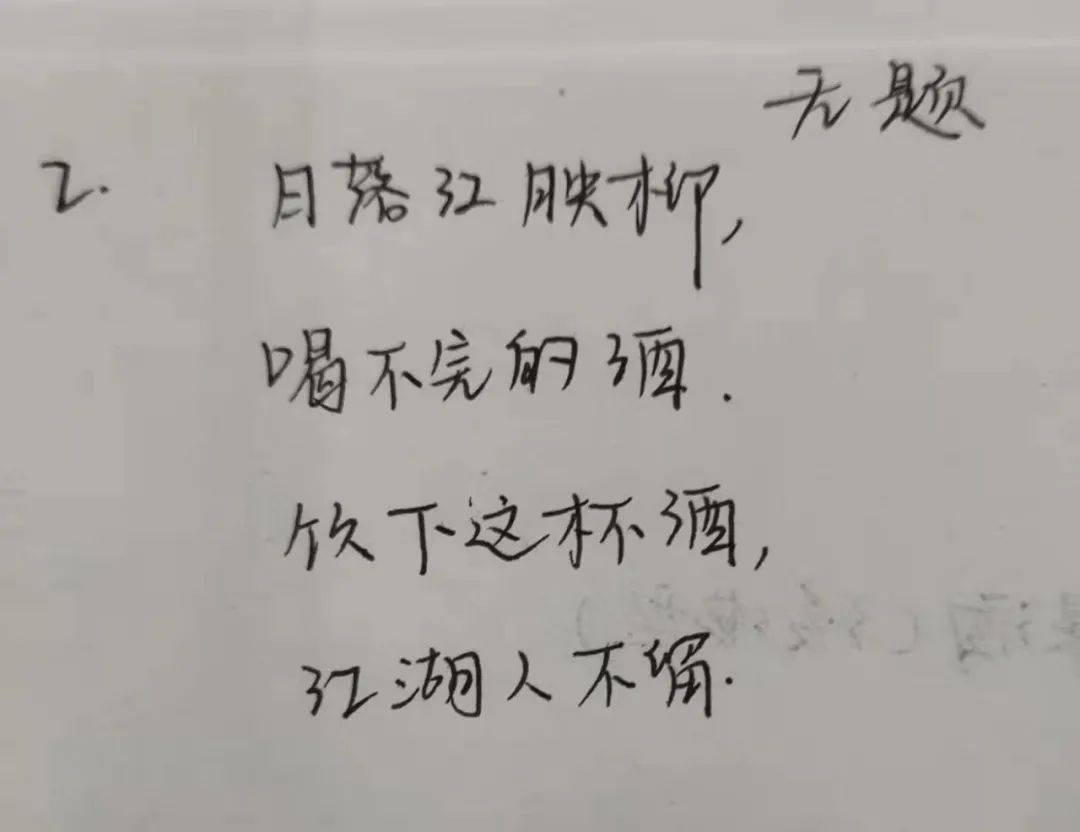 无题
2. 日落江映柳,
喝不完的酒.
饮下这杯酒,
江湖人不留.